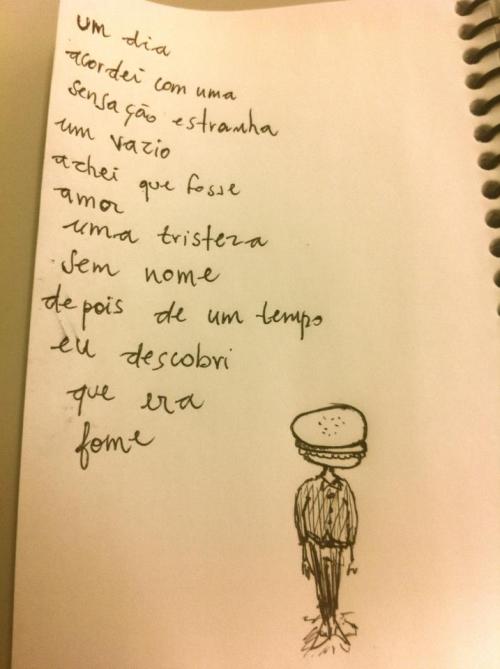 um dia
acordei com uma
sensação estranha
um vazio
achei que fosse
amor
uma tristeza
sem nome
depois de um tempo
eu descobri
que era
fome